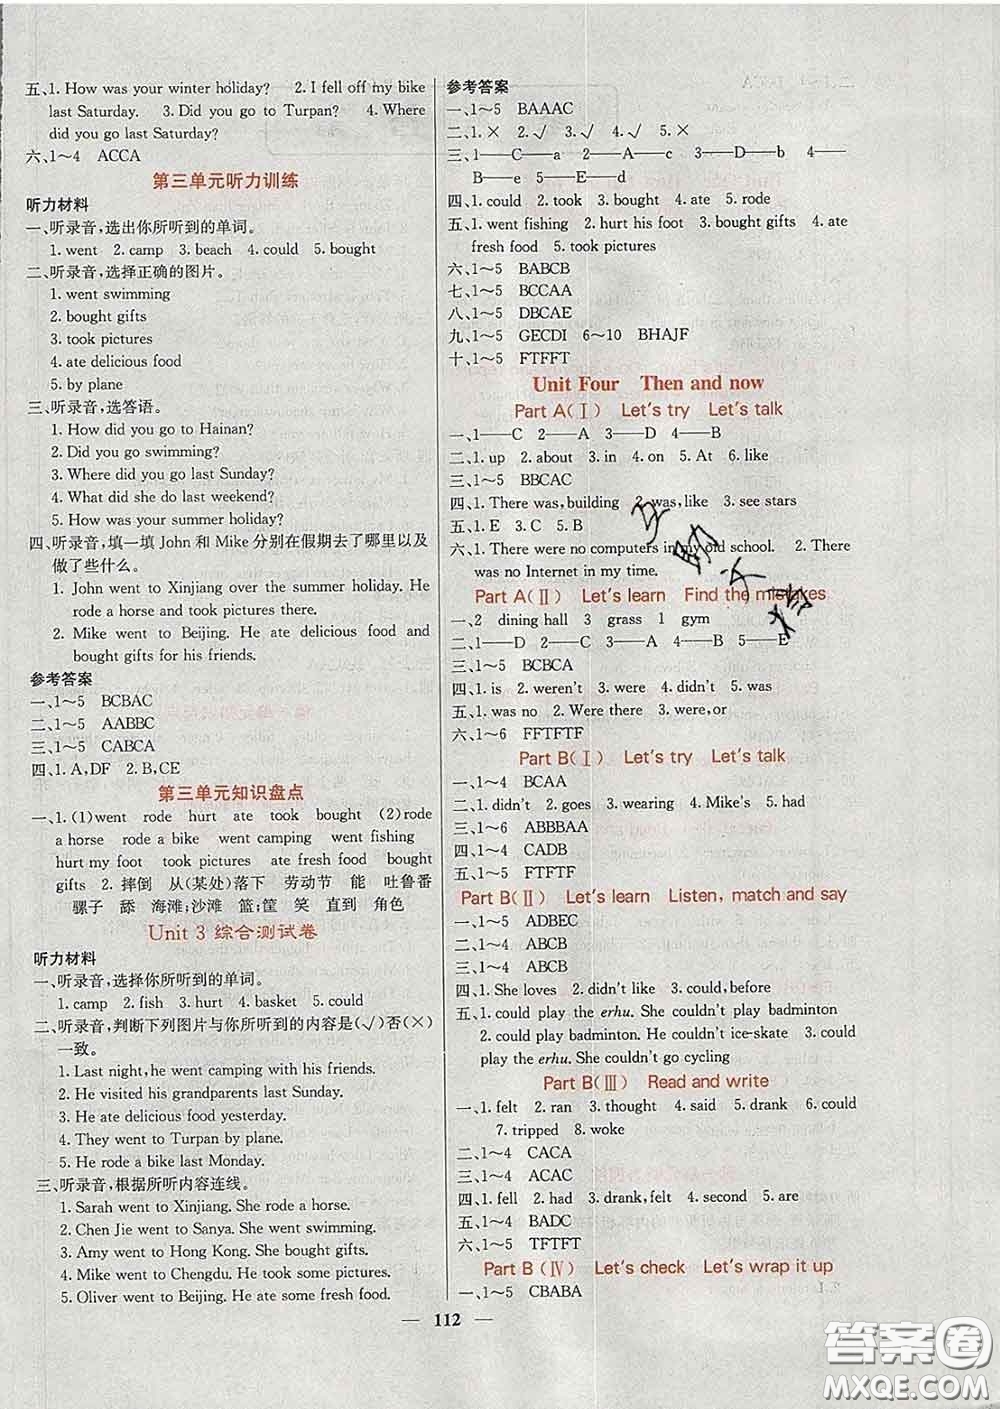 五、1. How was your winter holiday? 2. I fell off my bike
last Saturday. 3. Did you go to Turpan? 4. Where
did you go last Saturday?
六、1～4 ACCA
第三单元听力训练
听力材料
一、听录音,选出你所听到的单词。
1. went 2. camp 3. beach 4. could 5. bought
二、听录音,选择正确的图片。
1. went swimming
2. bought gifts
3. took pictures
4. ate delicious food
5. by plane
三、听录音,选答语。
1. How did you go to Hainan?
2. Did you go swimming?
3. Where did you go last Sunday?
4. What did she do last weekend?
5. How was your summer holiday?
四、听录音,填一填 John 和 Mike 分别在假期去了哪里以及
做了些什么。
1. John went to Xinjiang over the summer holiday. He
rode a horse and took pictures there.
2. Mike went to Beijing. He ate delicious food and
bought gifts for his friends.
参考答案
一、1～5 BCBAC
二、1～5 AABBC
三、1～5 CABCA
四、1. A,DF 2. B,CE
第三单元知识盘点
一、1. (1)went rode hurt ate took bought (2)rode
a horse rode a bike went camping went fishing
hurt my foot took pictures ate fresh food bought
gifts 2. 摔倒 从(某处)落下 劳动节 能 吐鲁番
骡子 舔 海滩;沙滩 篮;筐 笑 直到 角色
Unit 3 综合测试卷
听力材料
一、听录音,选择你所听到的单词。
1. camp 2. fish 3. hurt 4. basket 5. could
二、听录音,判断下列图片与你所听到的内容是(√)否(×)
一致。
1. Last night, he went camping with his friends.
2. He visited his grandparents last Sunday.
3. He ate delicious food yesterday.
4. They went to Turpan by plane.
5. He rode a bike last Monday.
三、听录音,根据所听内容连线。
1. Sarah went to Xinjiang. She rode a horse.
2. Chen Jie went to Sanya. She went swimming.
3. Amy went to Hong Kong. She bought gifts.
4. Mike went to Chengdu. He took some pictures.
5. Oliver went to Beijing. He ate some fresh food.
参考答案
一、1～5 BAAAC
二、1. × 2. √ 3. √ 4. √ 5. ×
三、1——C——a 2——A——c 3——D——b 4——
B——e 5——E——d
四、1. could 2. took 3. bought 4. ate 5. rode
五、1. went fishing 2. hurt his foot 3. bought gifts 4. ate
fresh food 5. took pictures
六、1～5 BABCB
七、1～5 BCCAA
八、1～5 DBCAE
九、1～5 GECDI 6～10 BHAJF
十、1～5 FTFFT
Unit Four Then and now
Part A(Ⅰ) Let's try Let's talk
一、1——C 2——A 3——D 4——B
二、1. up 2. about 3. in 4. on 5. At 6. like
三、1～5 BBCAC
四、1. There was, building 2. was, like 3. see stars
五、1. E 3. C 5. B
六、1. There were no computers in my old school. 2. There
was no Internet in my time.
Part A(Ⅱ) Let's learn Find the mistakes
一、2 dining hall 3 grass 1 gym
二、1——D 2——C 3——A 4——B 5——E
三、1～5 BCBCA
四、1. is 2. weren't 3. were 4. didn't 5. was
五、1. was no 2. Were there 3. were, or
六、1～6 FFTFTF
Part B(Ⅰ) Let's try Let's talk
一、1～4 BCAA
二、1. didn't 2. goes 3. wearing 4. Mike's 5. had
三、1～6 ABBBAA
四、1～4 CADB
五、1～5 FTFTF
Part B(Ⅱ) Let's learn Listen, match and say
一、1～5 ADBEC
二、1～4 ABCB
三、1～4 ABCB
四、1. She loves 2. didn't like 3. could, before
五、1. could play the erhu. She couldn't play badminton
2. could play badminton. He couldn't ice-skate 3. could
play the erhu. She couldn't go cycling
Part B(Ⅲ) Read and write
一、1. felt 2. ran 3. thought 4. said 5. drank 6. could
7. tripped 8. woke
二、1～4 CACA
三、1～4 ACAC
四、1. fell 2. had 3. drank, felt 4. second 5. are
五、1～4 BADC
六、1～5 TFTFT
Part B (Ⅳ) Let's check Let's wrap it up
一、1～5 CBABA
— 112 —
答案圈
MXQE.COM